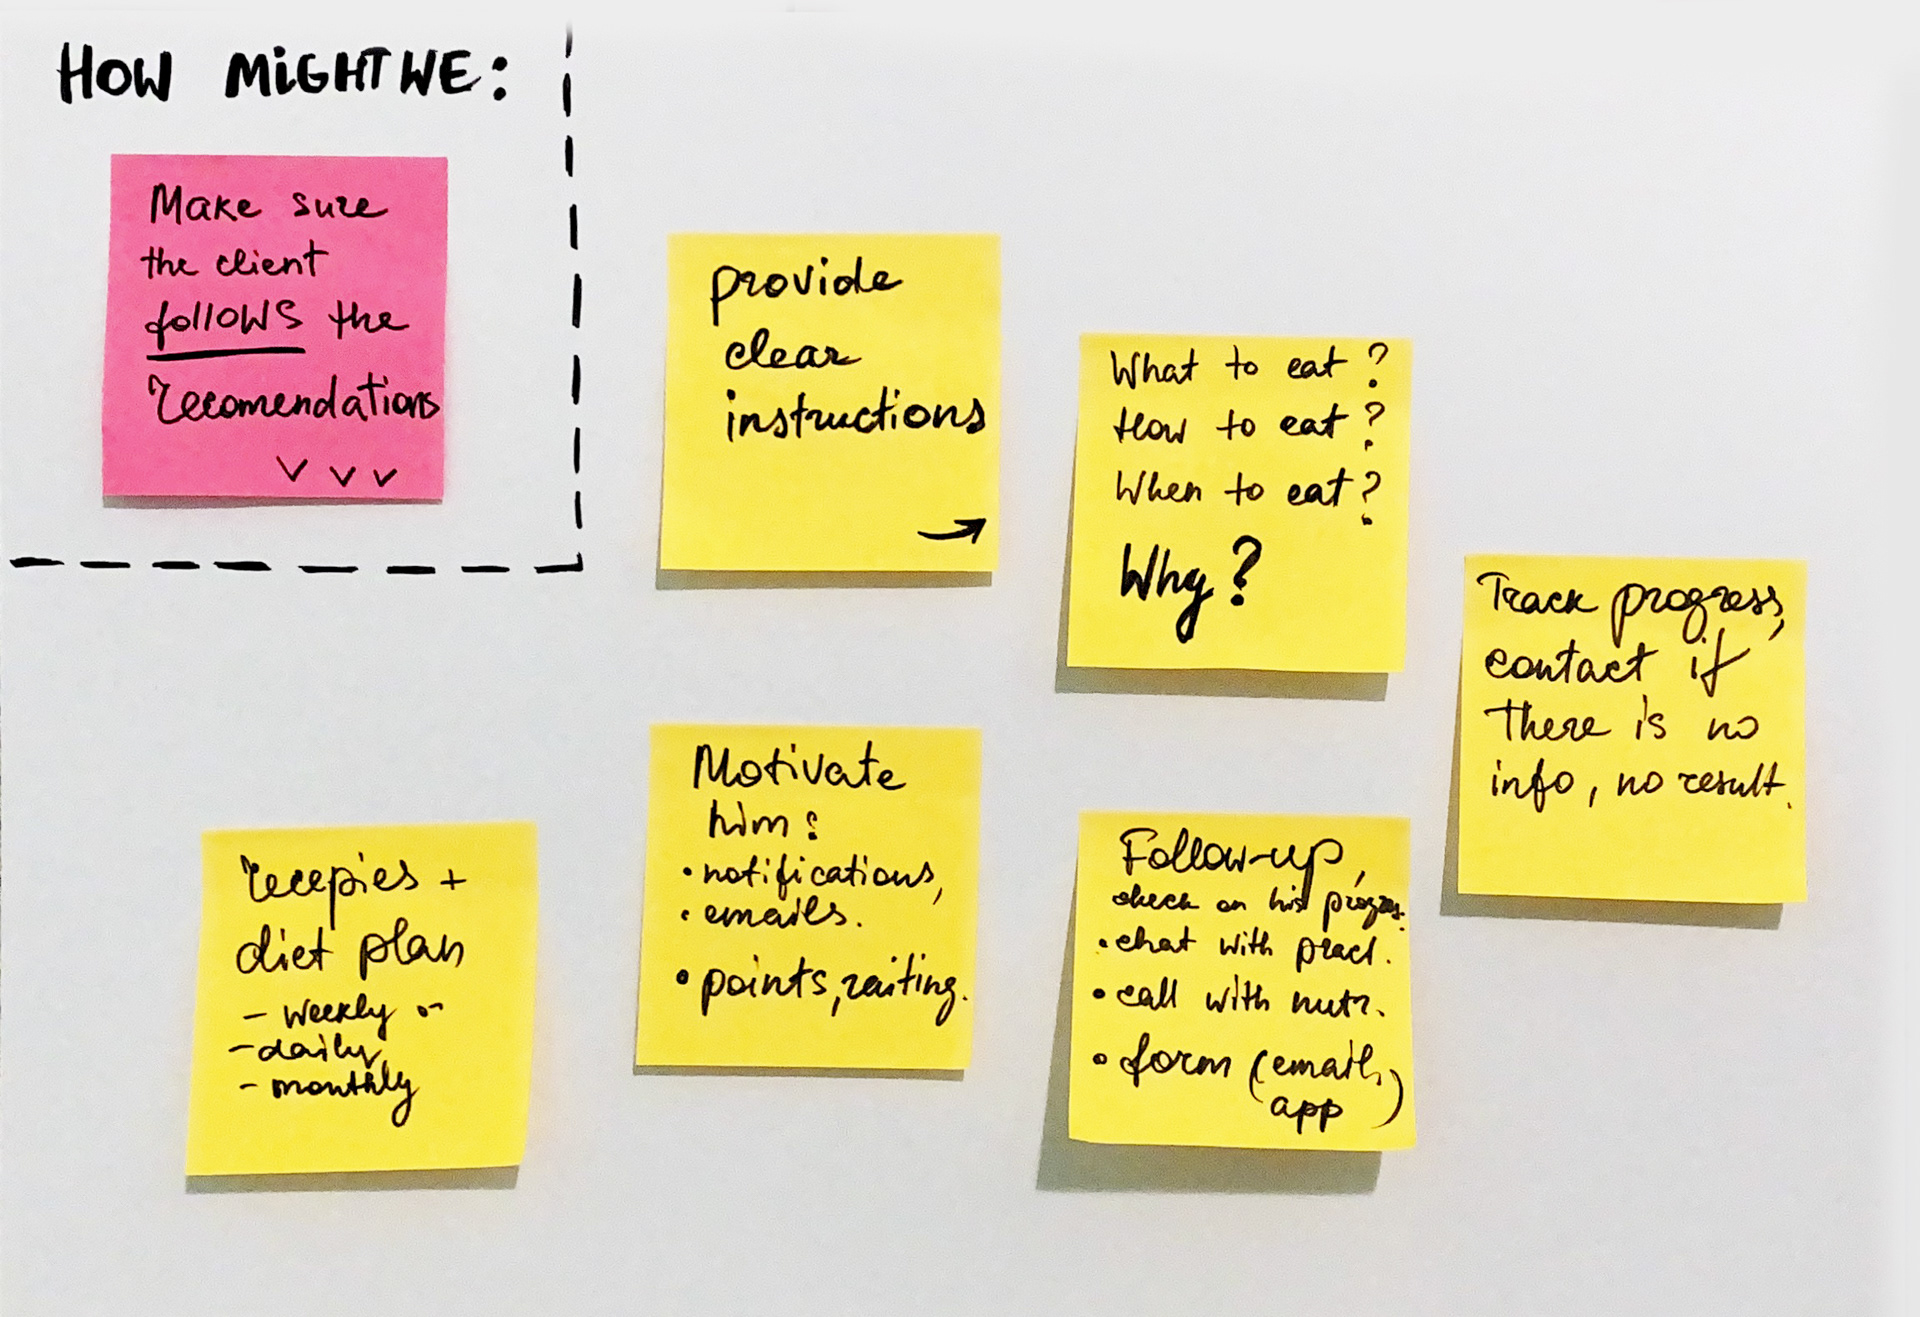 HOW MIGHT WE:
Make sure
the client
follows the
recomendations
provide
clear
instructions
What to eat?
How to eat?
When to eat?
Why?
Track progress,
contact if
there is no
info, no result.
recepies +
diet plan
- weekly or
- daily,
- monthly
Motivate
him:
• notifications,
• emails.
• points, raiting.
Follow-up,
check on his progres.
• chat with pract.
• call with nutr.
• form (email,
app)